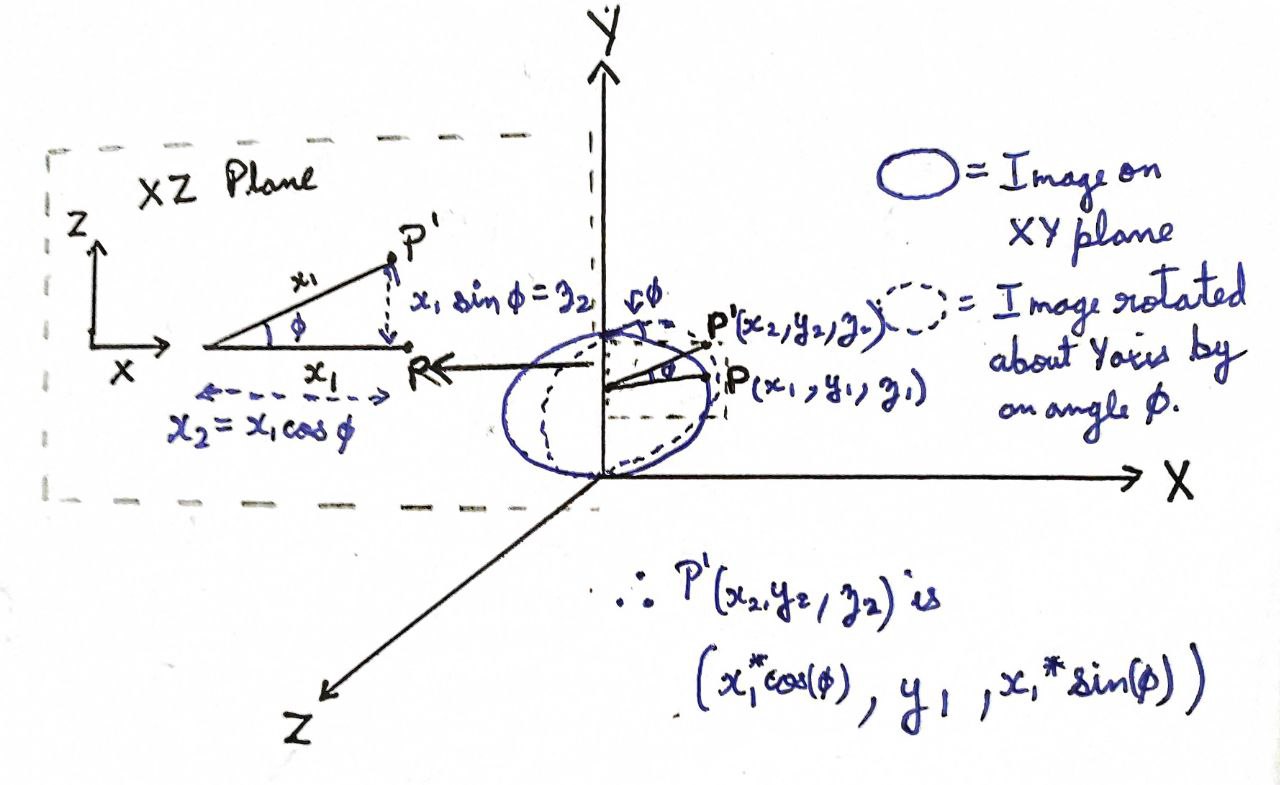 Y
XZ Plane
Z
X
P'
x₁
ϕ
x₁ sin ϕ = z₂
x₁
P
x₂ = x₁ cos ϕ
ϕ
P'(x₂, y₂, z₂)
ϕ
P(x₁, y₁, z₁)
= Image on
XY plane
= Image rotated
about Yaxis by
an angle ϕ.
X
Z
∴ P'(x₂, y₂, z₂) is
(x₁*cos(ϕ), y₁, x₁*sin(ϕ))